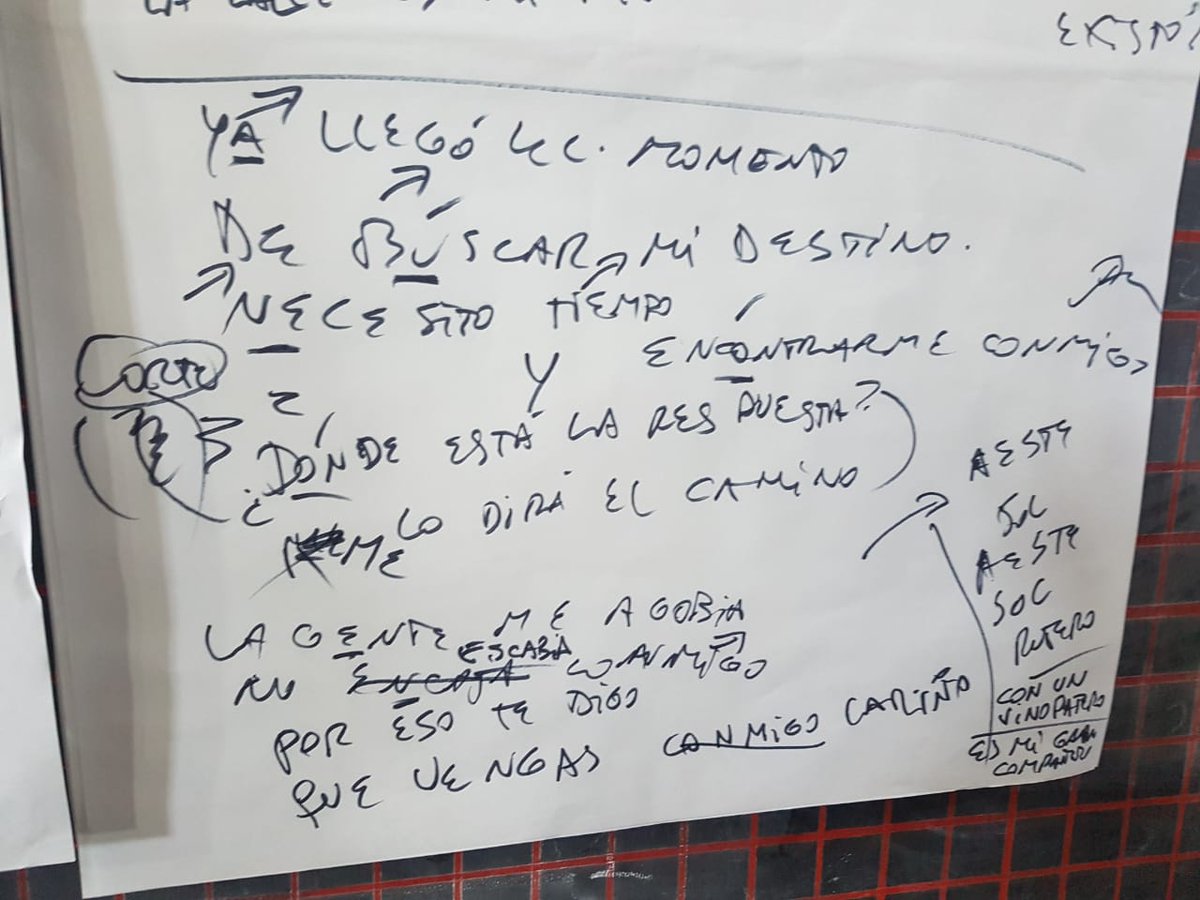 YA LLEGÓ EL MOMENTO
DE BÚSCAR MI DESTINO.
NECESITO TIEMPO
Y ENCÓNTRARME CONMIGO
CORTE
¿DÓNDE ESTÁ LA RESPUESTA?
ME LO DIRÁ EL CAMINO
LA GENTE ME AGOBIA
NO ENCAJA ESCABIA CONMIGO
POR ESO TE DIGO
QUE VENGAS CANMIGO CARIÑO
A ESTE
SOL
A ESTE
SOL
RUTERO
CON UN
VINO PATERO
ES MI GRAN
COMPAÑERO